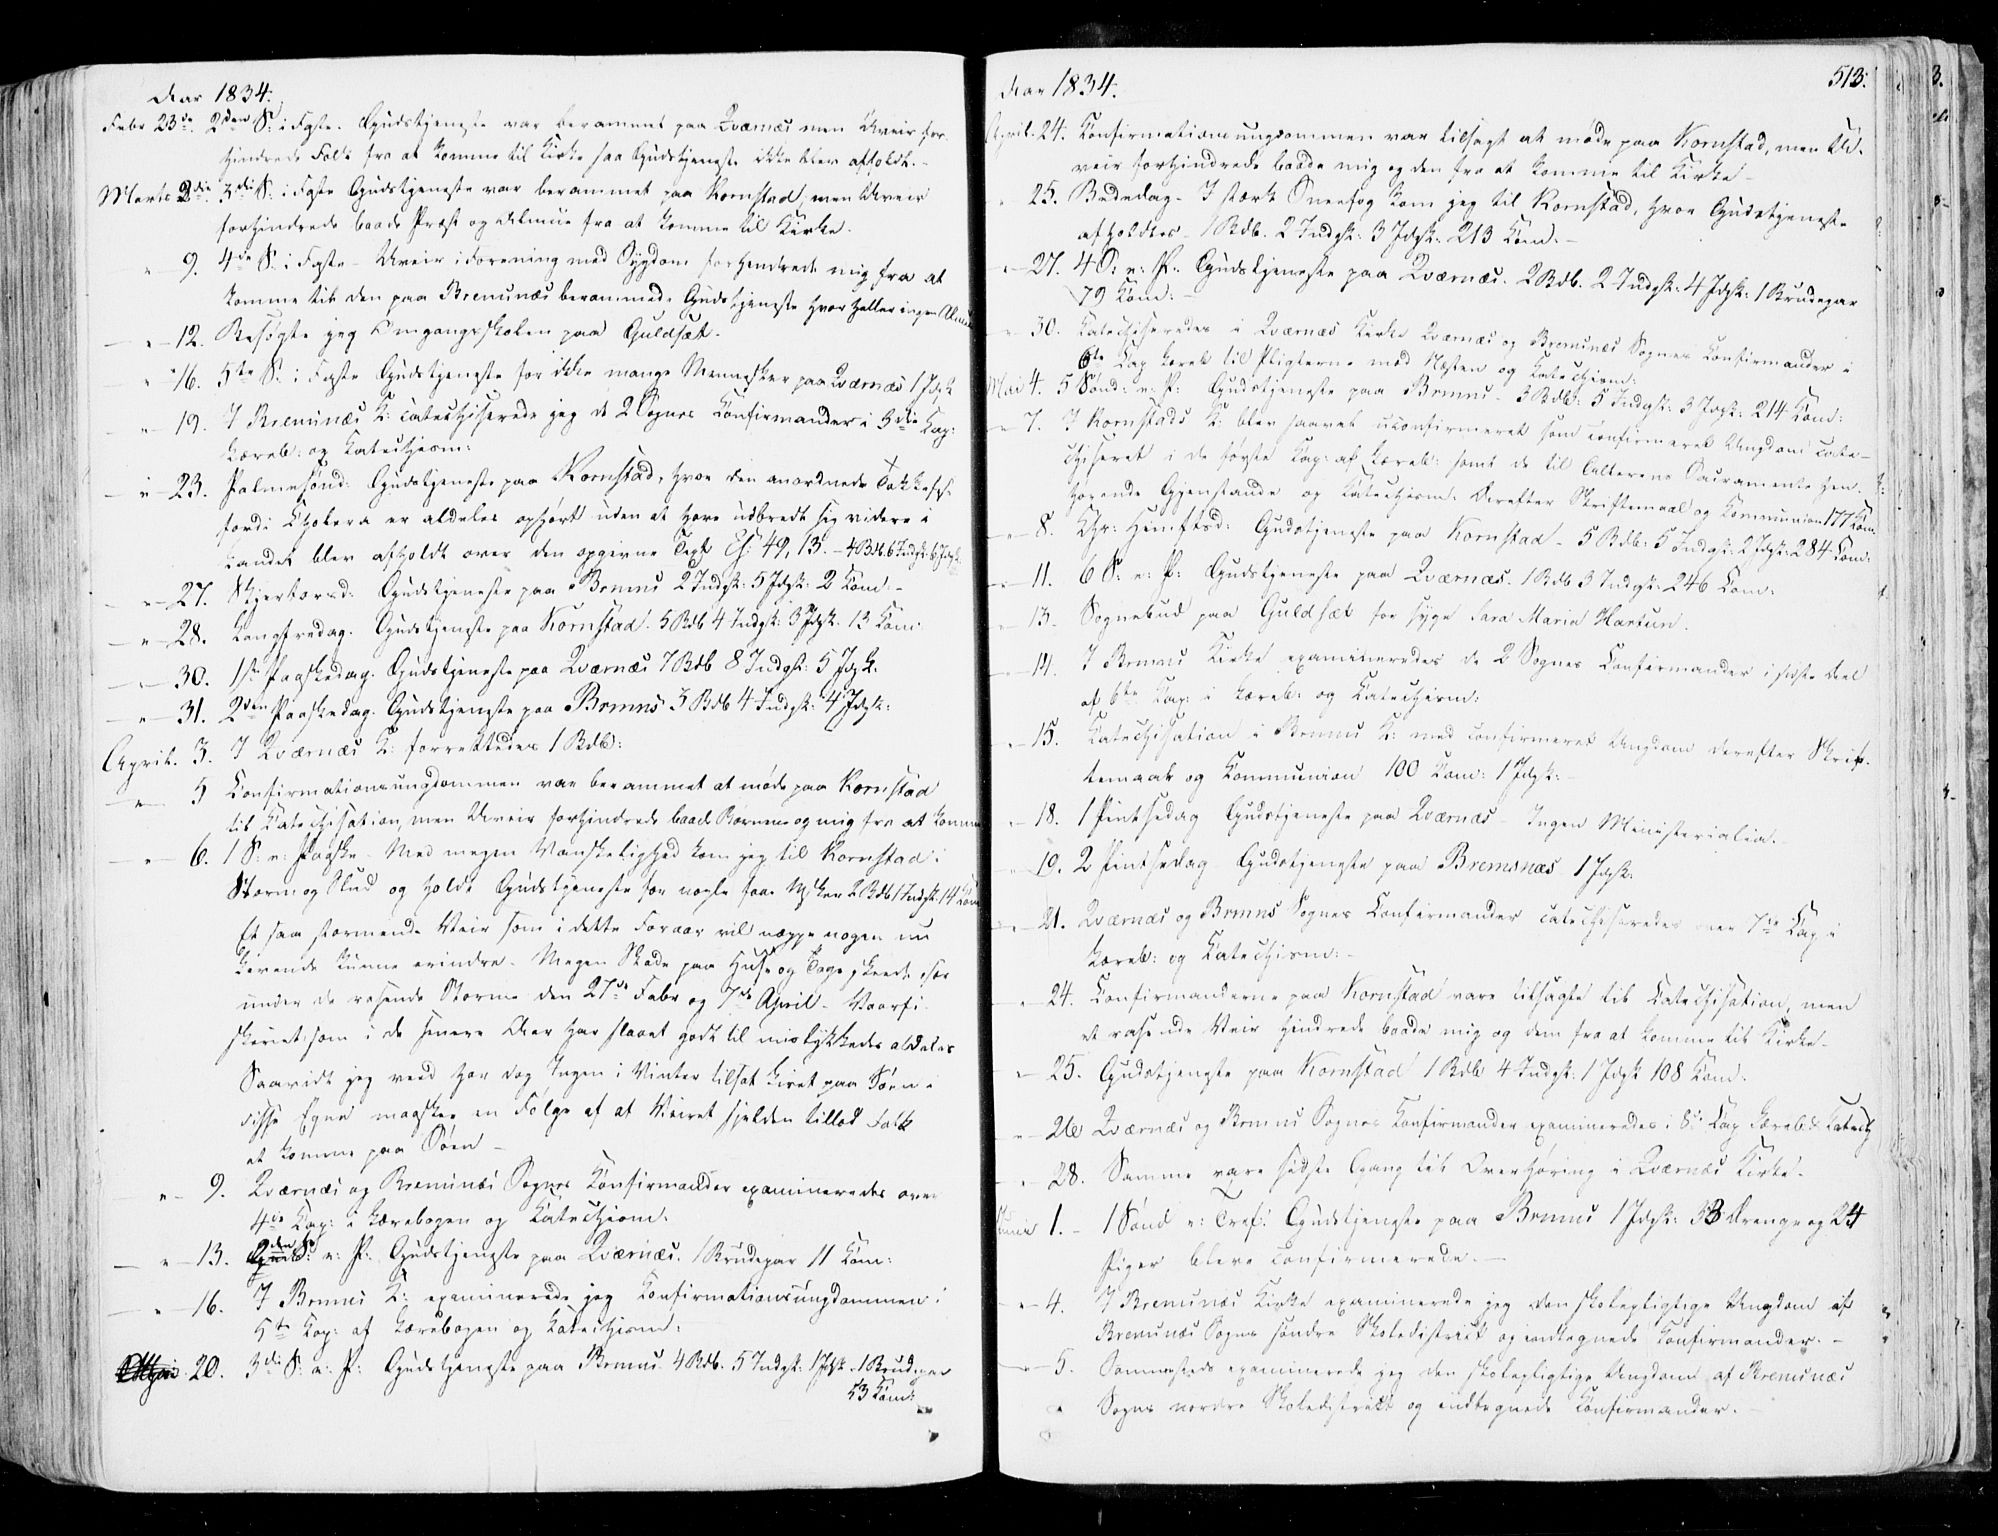 Aar 1834.
Febr 23de 2den S. i Faste. Gudstjeneste var berammet paa Qværnæs men Uveir for-
hindrede Folk fra at komme til Kirke saa Gudstjeneste ikke blev afholdt.-
Marts 2die. 3die S. i Faste Gudstjeneste var berammet paa Kornstad, men Uveir
forhindrede baade Præst og Almue fra at komme til Kirke.
" 9. 4de S. i Faste - Uveir i Forening med Sygdom forhindrede mig fra at
komme til den paa Bremsnæs berammede Gudstjeneste hvor heller ingen Almue
- " - 12. Besøgte jeg Omgangsskolen paa Guldsæt.
" 16. 5te S. i Faste Gudstjeneste for ikke mange Mennesker paa Qværnæs 1 Jdgk
- " - 19. I Bremsnæs K: catechiserede jeg de 2 Sognes Confirmander i 3die Cap:
Læreb: og Katechism:
- " - 23. Palmesønd: Gudstjeneste paa Kornstad, hvor den anordnede Takkefest
fordi Cholera er aldeles ophørt uden at have udbredt sig videre i
Landet blev afholdt over den opgivne Text Es: 49, 13. - 4 Bdb. 6 Indgk: 6 Jdgk:
- " - 27. Skjertorsd: Gudstjeneste paa Brmns 2 Indgk: 5 Jdgk: 2 Com: -
- " - 28. Langfredag. Gudstjeneste paa Kornstad. 5 Bdb 4 Indgk: 3 Jdgk. 13 Com.
- " - 30. 1ste Paaskedag. Gudstjeneste paa Qværnæs 7 Bdb 8 Indgk: 5 Jdgk.
- " - 31. 2den Paaskedag. Gudstjeneste paa Brmns 3 Bdb 4 Indgk: 4 Jdgk:
April. 3. I Qværnæs K: forrettedes 1 Bdb:
- " - 5 Confirmationsungdommen var berammet at møde paa Kornstad
til Katechisation, men Uveir forhindrede baade Børnene og mig fra at komme
- " - 6. 1 S: e: Paaske - Med megen Vanskelighed kom jeg til Kornstad i
Storm og Slud og holdt Gudstjeneste for nogle faae Msker 2 Bdb 1 Indgk. 14 Com
Et saa stormende Veir som i dette Foraar vil neppe nogen nu
levende kunne erindre. Megen Skade paa Huse og Tage skeede især
under de rasende Storme den 27de Febr og 7de April. Vaarfi-
skeriet som i de senere Aar har slaaet godt til mislykkedes aldeles
Saavidt jeg veed har dog Ingen i Vinter tilsat Livet paa Søen i
disse Egne maaskee en Følge af at Veiret sjelden tillod Folk
at komme paa Søen -
" - 9. Qværnæs og Bremsnæs Sognes Confirmander examineredes over
4de Cap: i Lærebogen og Katechism.
- " - 13. 2den S: e: P: Gudstjeneste paa Qværnæs. 1 Brudepar 11 Com:
- " - 16. I Brmns K: examinerede jeg Confirmationsungdommen i
5te Cap: af Lærebogen og Katechism:
20. 3die S: e: P: Gudstjeneste paa Brmns 4 Bdb. 5 Indgk: 1 Jdgk. 1 Brudepar
53 Com:
Aar 1834. 513.
April. 24. Confirmationsungdommen var tilsagt at møde paa Kornstad, men U-
veir forhindrede baade mig og den fra at komme til Kirke -
25. Bededag - I stærk Sneefog kom jeg til Kornstad, hvor Gudstjeneste
afholdtes - 1 Bdb. 2 Indgk: 3 Jdgk. 213 Com. -
" - 27. 4 S: e: P: Gudstjeneste paa Qværnæs. 2 Bdb. 2 Indgk: 4 Jdgk: 1 Brudepar
79 Com: -
- 30. Katechiseredes i Qværnæs Kirke Qværnæs og Bremsnæs Sognes Confirmander i
6te Cap Læreb til Pligterne mod Næsten og Katechism:
Mai 4. 5 Sønd: e: P: Gudstjeneste paa Brmns - 3 Bdb: 5 Indgk: 3 Jdgk: 214 Com:
- 7. I Kornstads K: blev saavel uconfirmeret som confirmeret Ungdom cate-
chiseret i de første Cap: af Læreb: samt de til Alterens Sacramente hen-
hørende Gjenstande og Katechism: Derefter Skriftemaal og Communion 177 Com
" - 8. Chr: Himftsd: Gudstjeneste paa Kornstad - 5 Bdb: 5 Indgk: 2 Jdgk: 284 Com:
- 11. 6 S: e: P: Gudstjeneste paa Qværnæs. 1 Bdb 3 Indgk: 246 Com:
- 13. Sognebud paa Guldsæt for syge Sara Maria Hartun.
- 14. I Brmns Kirke examineredes de 2 Sognes Confirmander i sidste Deel
af 6te Cap: i Læreb: og Catechism:
- 15. Katechisation i Brmns K: med confirmeret Ungdom derefter Skrif-
temaal og Communion 100 Com: 1 Jdgk: -
- 18. 1 Pintsedag Gudstjeneste paa Qværnæs - Ingen Ministerialia. -
- 19. 2 Pintsedag Gudstjeneste paa Bremsnæs 1 Jdgk.
- 21. Qværnæs og Brmns Sognes Confirmander catechiseredes over 7de Cap i
Læreb: og Katechism: -
" - 24. Confirmanderne paa Kornstad vare tilsagte til Catechisation, men
et rasende Veir hindrede baade mig og dem fra at komme til Kirke -
" - 25. Gudstjeneste paa Kornstad 1 Bdb 4 Indgk: 1 Jdgk 108 Com:
" - 26 Qværnæs og Brmns Sognes Confirmander examineredes i 8de Cap Læreb: & Katech
" 28. Samme vare sidste Gang til Overhøring i Qværnæs Kirke -
Junii 1. - 1 Sønd e: Tref: Gudstjeneste paa Brmns 1 Jdgk: 33 Drenge og 24
Piger bleve confirmerede. -
" - 4. I Bremsnæs Kirke examinerede jeg den skolepligtige Ungdom af
Bremsnæs Sogns søndre Skoledistrict og indtegnede Confirmander. -
" - 5. Sammesteds examinerede jeg den skolepligtige Ungdom af Bremsnæs
Sogns nordre Skoledistrict og indtegnede Confirmander. -